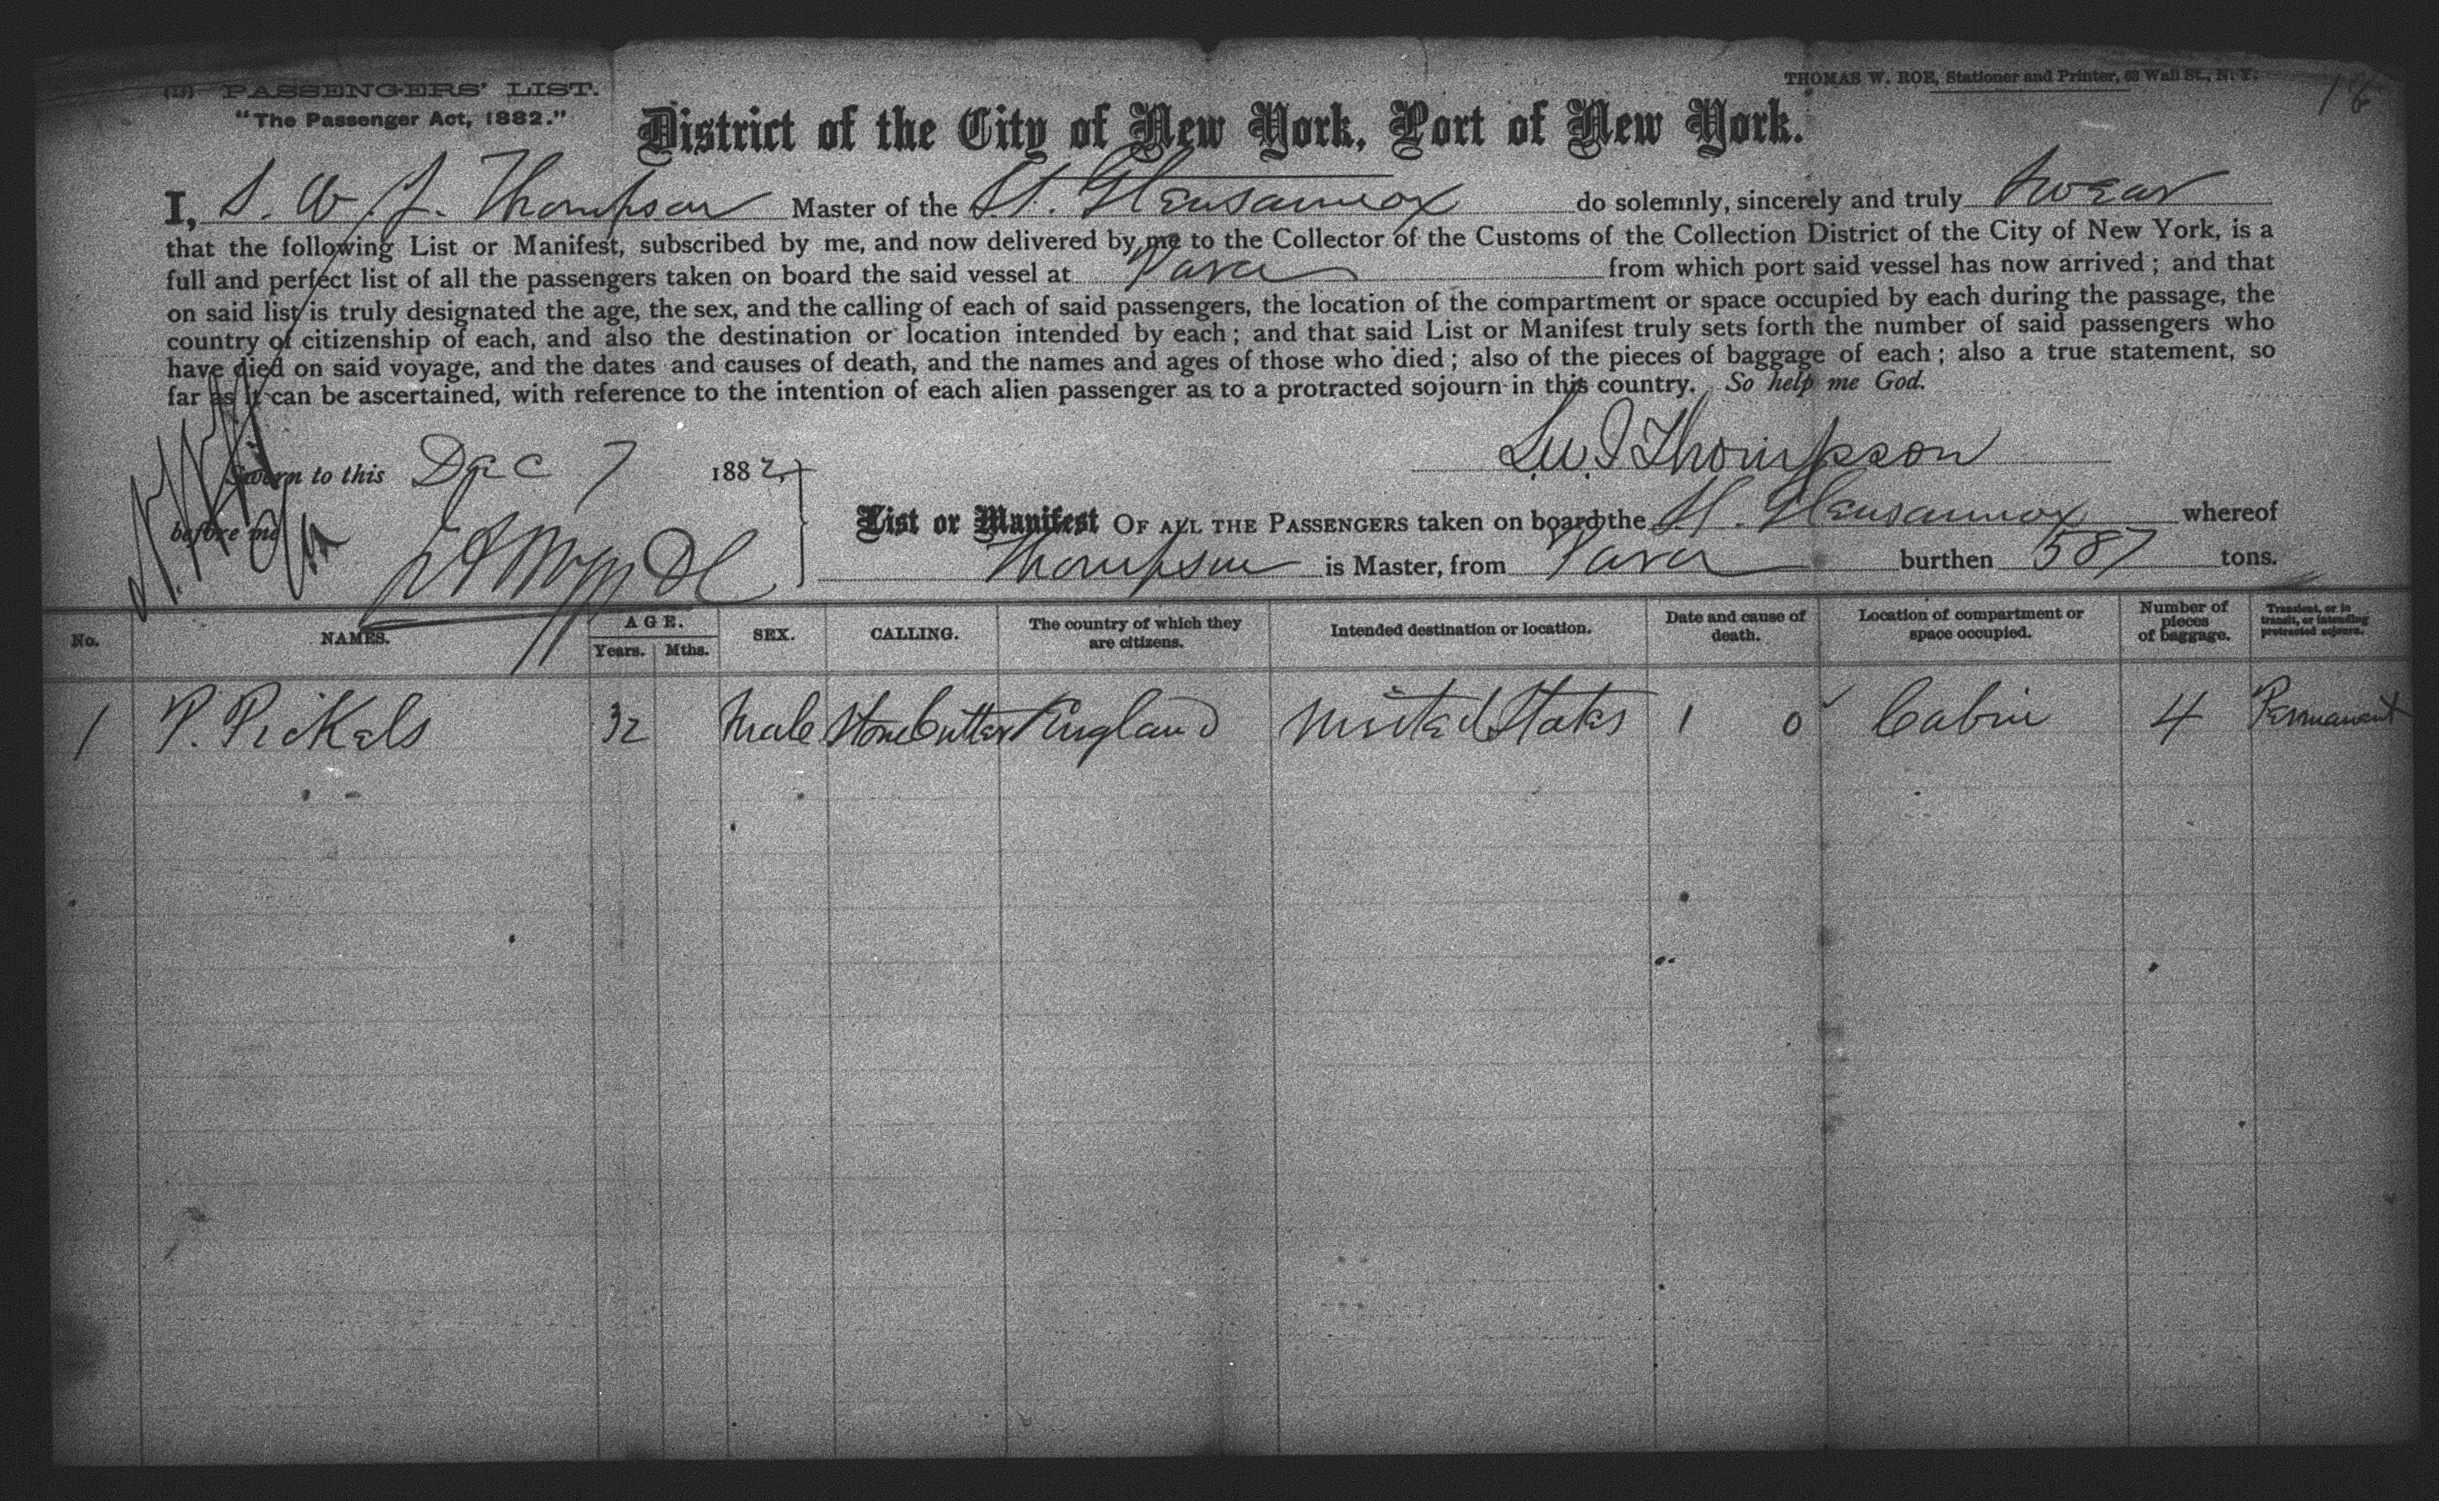 (15) PASSENGERS' LIST.
THOMAS W. ROE, Stationer and Printer, 63 Wall St., N. Y.
"The Passenger Act, 1882."
District of the City of New York, Port of New York.
I, S. W. J. Thompson Master of the St. Glensannox do solemnly, sincerely and truly swear
that the following List or Manifest, subscribed by me, and now delivered by me to the Collector of the Customs of the Collection District of the City of New York, is a
full and perfect list of all the passengers taken on board the said vessel at Para from which port said vessel has now arrived; and that
on said list is truly designated the age, the sex, and the calling of each of said passengers, the location of the compartment or space occupied by each during the passage, the
country of citizenship of each, and also the destination or location intended by each; and that said List or Manifest truly sets forth the number of said passengers who
have died on said voyage, and the dates and causes of death, and the names and ages of those who died; also of the pieces of baggage of each; also a true statement, so
far as it can be ascertained, with reference to the intention of each alien passenger as to a protracted sojourn in this country. So help me God.
S. W. J Thompson
Sworn to this Dec 7 1882,
before me
List or Manifest OF ALL THE PASSENGERS taken on board the St. Glensannox whereof
Thompson is Master, from Para burthen 587 tons.
No. NAMES. AGE. Years. Mths. SEX. CALLING. The country of which they are citizens. Intended destination or location. Date and cause of death. Location of compartment or space occupied. Number of pieces of baggage. Transient, or in transit, or intending protracted sojourn.
1 P. Pickels 32 Male Stonecutter England United States 1 0 Cabin 4 Permanent